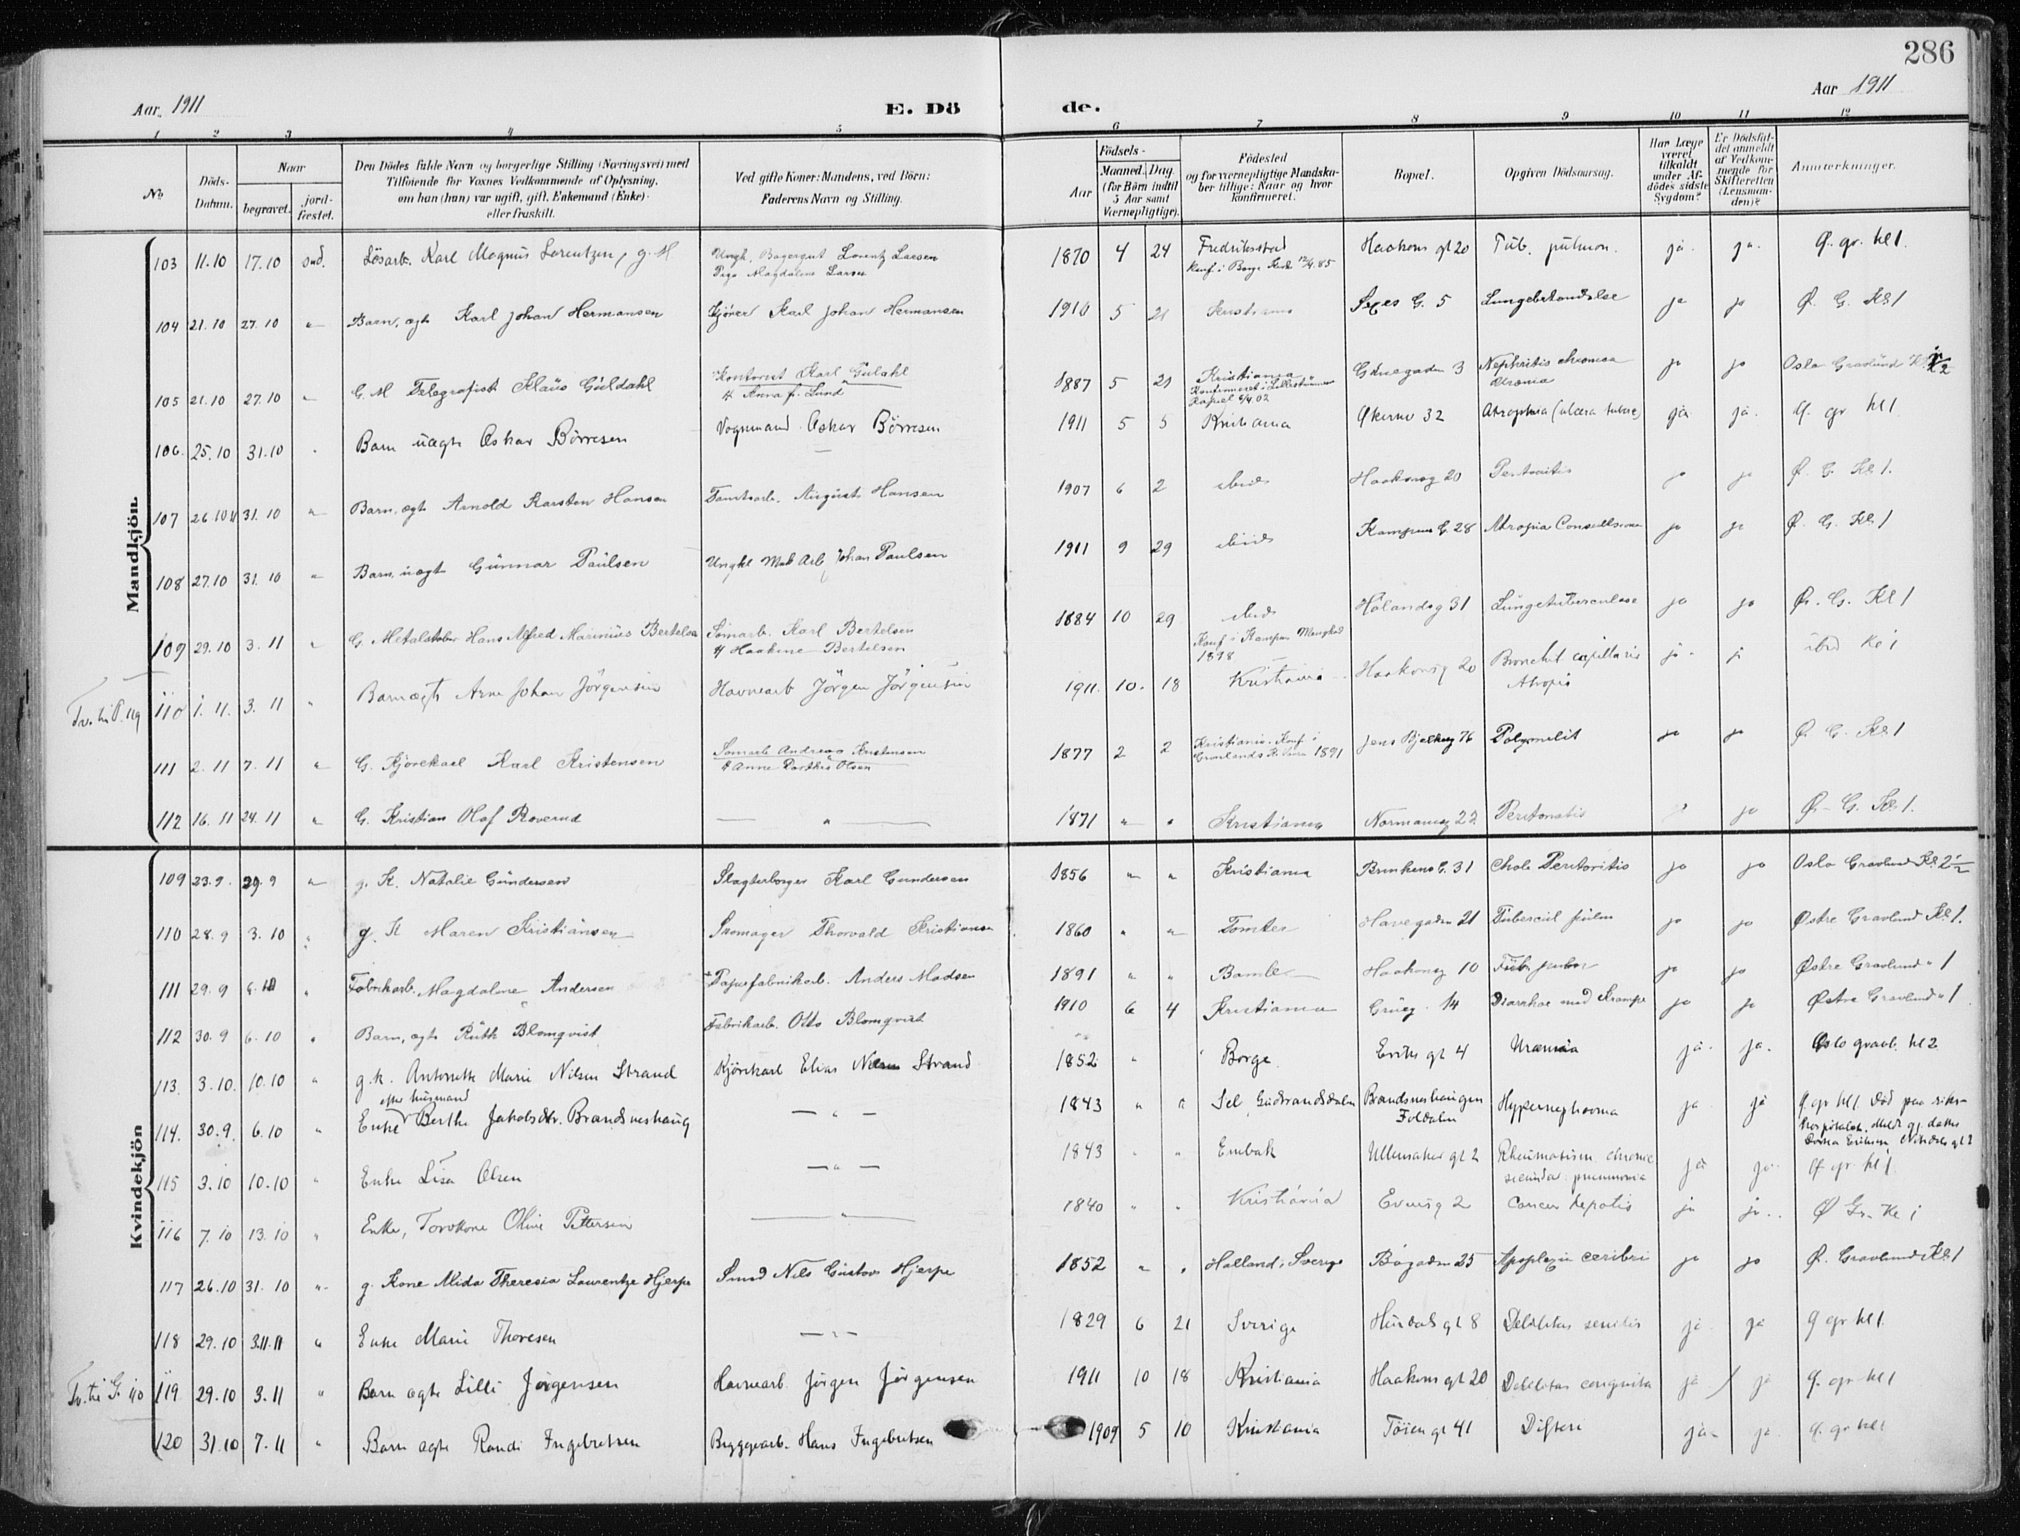 286
Aar 1911
E. Dö
de.
Aar 1911
1 2 3 4 5 6 7 8 9 10 11 12
No
Döds-Datum.
Naar
begravet.
jord-fæstet.
Den Dödes fulde Navn og borgerlige Stilling (Næringsvei) med
Tilföiende for Voxnes Vedkommende af Oplysning,
om han (hun) var ugift, gift, Enkemand (Enke)
eller fraskilt.
Ved gifte Koner: Mandens, ved Börn:
Faderens Navn og Stilling.
Födsels-
Aar
Maaned. Dag.
(for Börn indtil
5 Aar samt
Værnepligtige).
Födested
og for værnepligtige Mandska-
ber tillige: Naar og hvor
konfirmeret.
Bopæl.
Opgiven Dödsaarsag.
Har Læge
været
tilkaldt
under Af-
dödes sidste
Sygdom?
Er Dödsfal-
det anmeldt
af Vedkom-
mende for
Skifteretten
(Lensman-
den)?
Anmærkninger.
Mandkjön.
103 11.10 17.10 Karl Magnus Lorentzen, g. M Lorentz Larsen 1870 4 24 Fredriksstad Haakons gt 20 Tub. pulmon. ja. ja. Ø. gr. kl 1.
Magdalene Larsen
104 21.10 27.10 " Barn, ægte Karl Johan Hermansen Kjörer Karl Johan Hermansen 1910 5 21 Kristiania G. 5 Lungebetændelse ja ja Ø. G. Kl 1
105 21.10 27.10 " G. M Telegrafist Klaus Guldahl Kontorist Karl Guldahl 1887 5 21 Kristiania Grüegaden 3 Nephritis chronica ja ja Oslo Gravlund
& Anna f. Lund
106. 25.10 31.10 " Barn uægte Oskar Börresen Vognmand Oskar Börresen 1911 5 5 Kristiania Økernv 32 Atrophia ja. ja. Ø. gr kl 1
107 26.10 31.10 " Barn, ægte Arnold Karsten Hansen Tomtearb. August Hansen 1907 6 2 ibid Haakonsg 20 Peritonitis ja ja Ø. G. Kl 1.
108 27.10 31.10 " Barn, uægte Gunnar Paulsen Ungkl Mab Arb Johan Paulsen 1911 9 29 ibid Kampens G. 28 Atropia ja ja Ø. G. Kl 1
109 29.10 3.11 " G. Metalarbeider Hans Alfred Marinius Bertelsen Karl Bertelsen 1884 10 29 ibid Hölandsg 31 Lungetuberculose ja ja Ø. G. Kl 1
& Haakine Bertelsen Konf i Kampen Menighed
Tv. til P. 119 110 1.11. 3.11 " Barn ægte Arne Johan Jörgensen Havnearb Jörgen Jörgensen 1911. 10. 18 Kristiania Haakonsg 20 Bronchit capillaris ja. ja ibid kl 1
Atropia
111 2.11 7.11 " G. Kjörekarl Karl Kristensen Andreas Kristensen 1877 2 2 Kristiania. Konf i Jens Bjelkesg 76 Polymelit ja ja Ø G. Kl 1
& Anne Dorthea Olsen Grønlands Kirke 1891
112 16.11 24.11 " G. Kristian Olaf Roverud — " — 1871 " " Kristiania Normansg 22 Peritonitis ja Ø. G. Kl. 1.
Kvindekjön
109 23.9. 29.9 " g. K. Natalie Gundersen Slagterborger Karl Gundersen 1856 " " Kristiania Brinkens G. 31 Chole Peritonitis ja ja Oslo Gravlund Kl 2
110 28.9 3.10 " g. K Maren Kristiansen Skomager Thorvald Kristiansen 1860 " " Tomter Havegaden 21 Tubercul pulm ja ja Østre Gravlund Kl 1.
111 29.9 6.10 " Fabrikarb. Magdalene Andersen Papirfabrikarb. Anders Madsen 1891 " " Bamle Haakonsg 10 Tub. ja ja Østre Gravlund " 1
112 30.9 6.10 " Barn, ægte Ruth Blomqvist Fabrikarb. Otto Blomqvist 1910 6 4 Kristiania Grüeg. 14 Diarrhoe med Krampe ja ja Østre Gravlund " 1
113. 3.10. 10.10 " g.k. Antonette Marie Nilsen Strand Kjörekarl Elias Nilsen Strand 1852 " " Borge Eriks gt 4 Uræmia ja. ja. Oslo gravl. kl 2
efter husmand
114. 30.9. 6.10 " Enke Berthe Jakobsdtr. Brandsneshaug — " — 1843 " " Sel Gudbrandsdalen Brandsneshaugen Hypernephroma ja ja Ø gr kl 1. Död paa riks-
Foldalen hospitalet.
115 3.10 10.10 " Enke Lisa Olsen — " — 1843 " " Enebak Ullensaker gt 2 Rheumatism. chronic ja ja. Ø gr kl 1.
pneumonia
116 7.10 13.10 " Enke, Torvkone Oline Pettersen — " — 1840 " " Kristiania 2 Cancer hepatis ja ja. Ø Gr. Kl 1
117 26.10 31.10 " g. Kone Alida Theresia Laurentze Hjerpe Smed Nils Gustav Hjerpe 1852 " " Halland, Sverige Bögaden 25 Apoplexia cerebri ja ja Ø. Gravlund Kl 1
118 29.10 3.11.11 " Enke Marie Thoresen — " — 1829 6 21 Sverige Hurdals gt 8 Debilitas senilis ja. ja Ø gr kl 1.
Tv. til G. 110 119 29.10 3.11 " Barn ægte Lilli Jørgensen Havnearb. Jörgen Jørgensen 1911 10 18 Kristiania Haakons gt 20 Debilitas congenita ja ja Ø. gr kl 1
120 31.10 7.11 " Barn ægte Randi Ingebretsen Byggearb. Hans Ingebretsen 1909 5 10 Kristiania Töien gt 41 Difteri ja. ja. Ø. gr kl 1